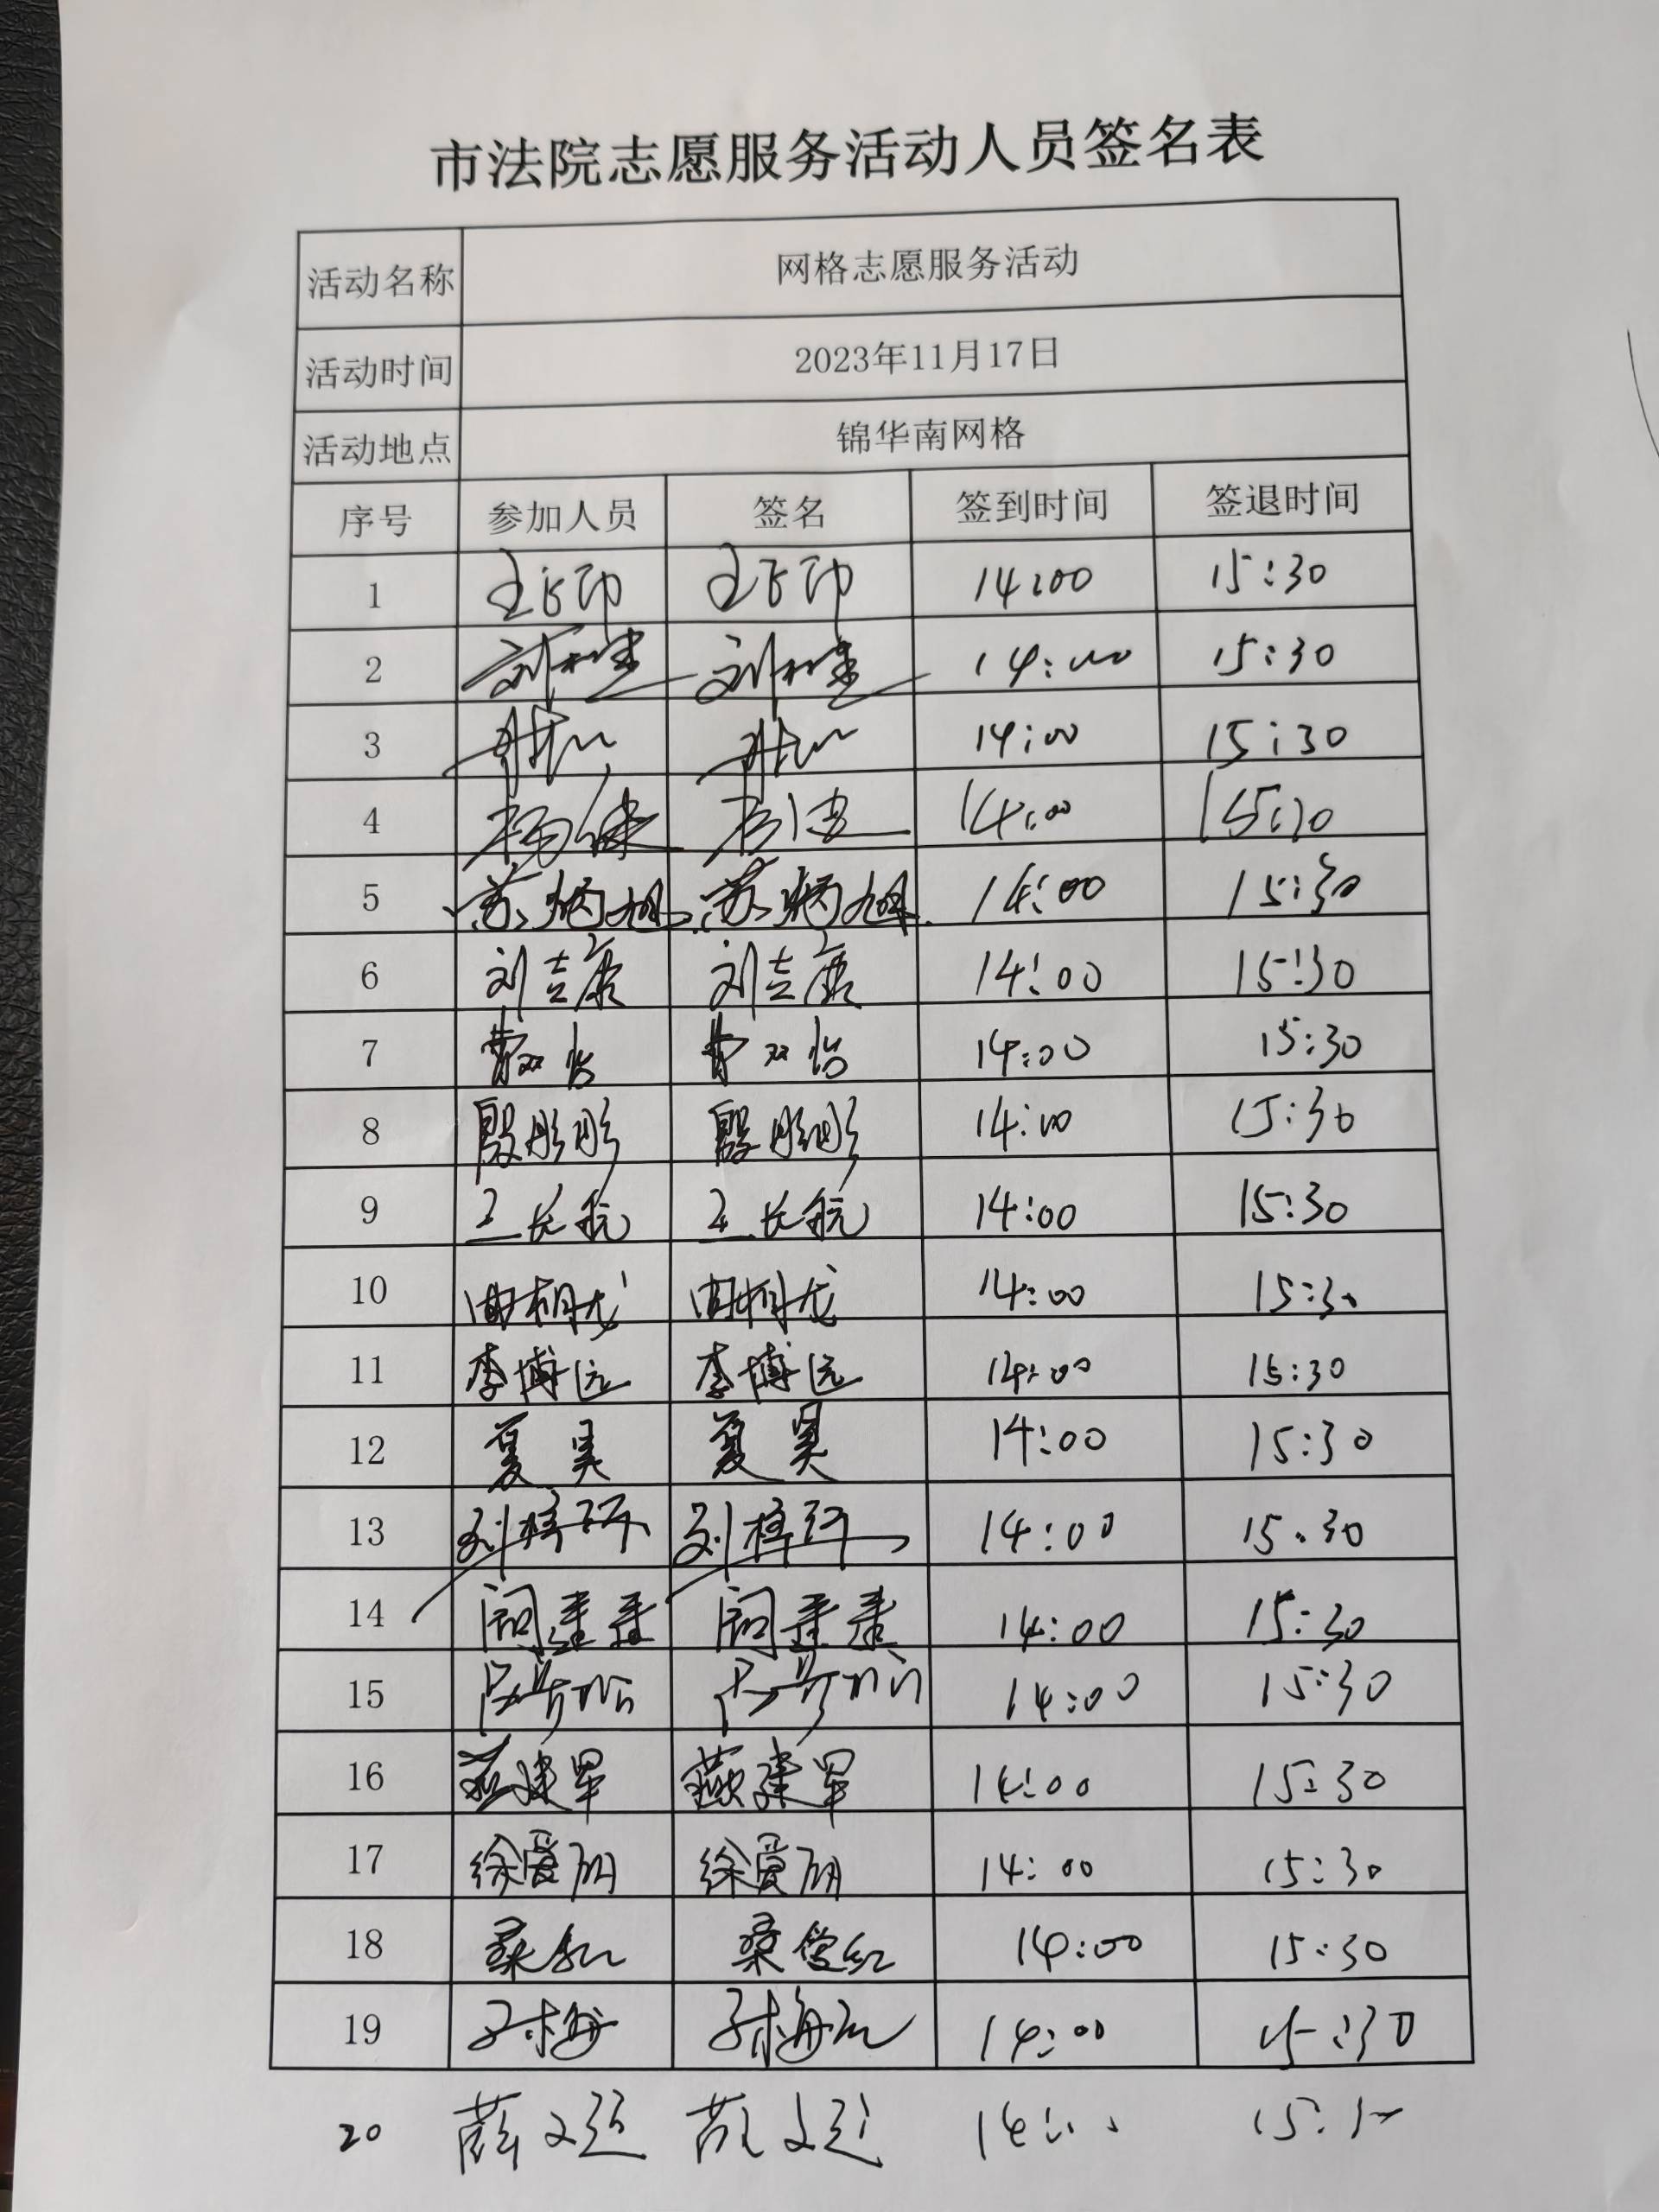 市法院志愿服务活动人员签名表
活动名称 网格志愿服务活动
活动时间 2023年11月17日
活动地点 锦华南网格
序号 参加人员 签名 签到时间 签退时间
1 王飞印 王飞印 14:00 15:30
2 14:00 15:30
3 14:00 15:30
4 杨健 14:00 15:30
5 苏炳旭 苏炳旭 14:00 15:30
6 刘吉康 刘吉康 14:00 15:30
7 曹双怡 曹双怡 14:00 15:30
8 殷彤彤 殷彤彤 14:00 15:30
9 王长航 王长航 14:00 15:30
10 14:00 15:30
11 李博远 李博远 14:00 15:30
12 夏昊 夏昊 14:00 15:30
13 刘梓研 刘梓研 14:00 15:30
14 14:00 15:30
15 14:00 15:30
16 燕建军 燕建军 14:00 15:30
17 徐爱丽 徐爱丽 14:00 15:30
18 桑学红 14:00 15:30
19 14:00 15:30
20 薛文超 薛文超 14:00 15:30